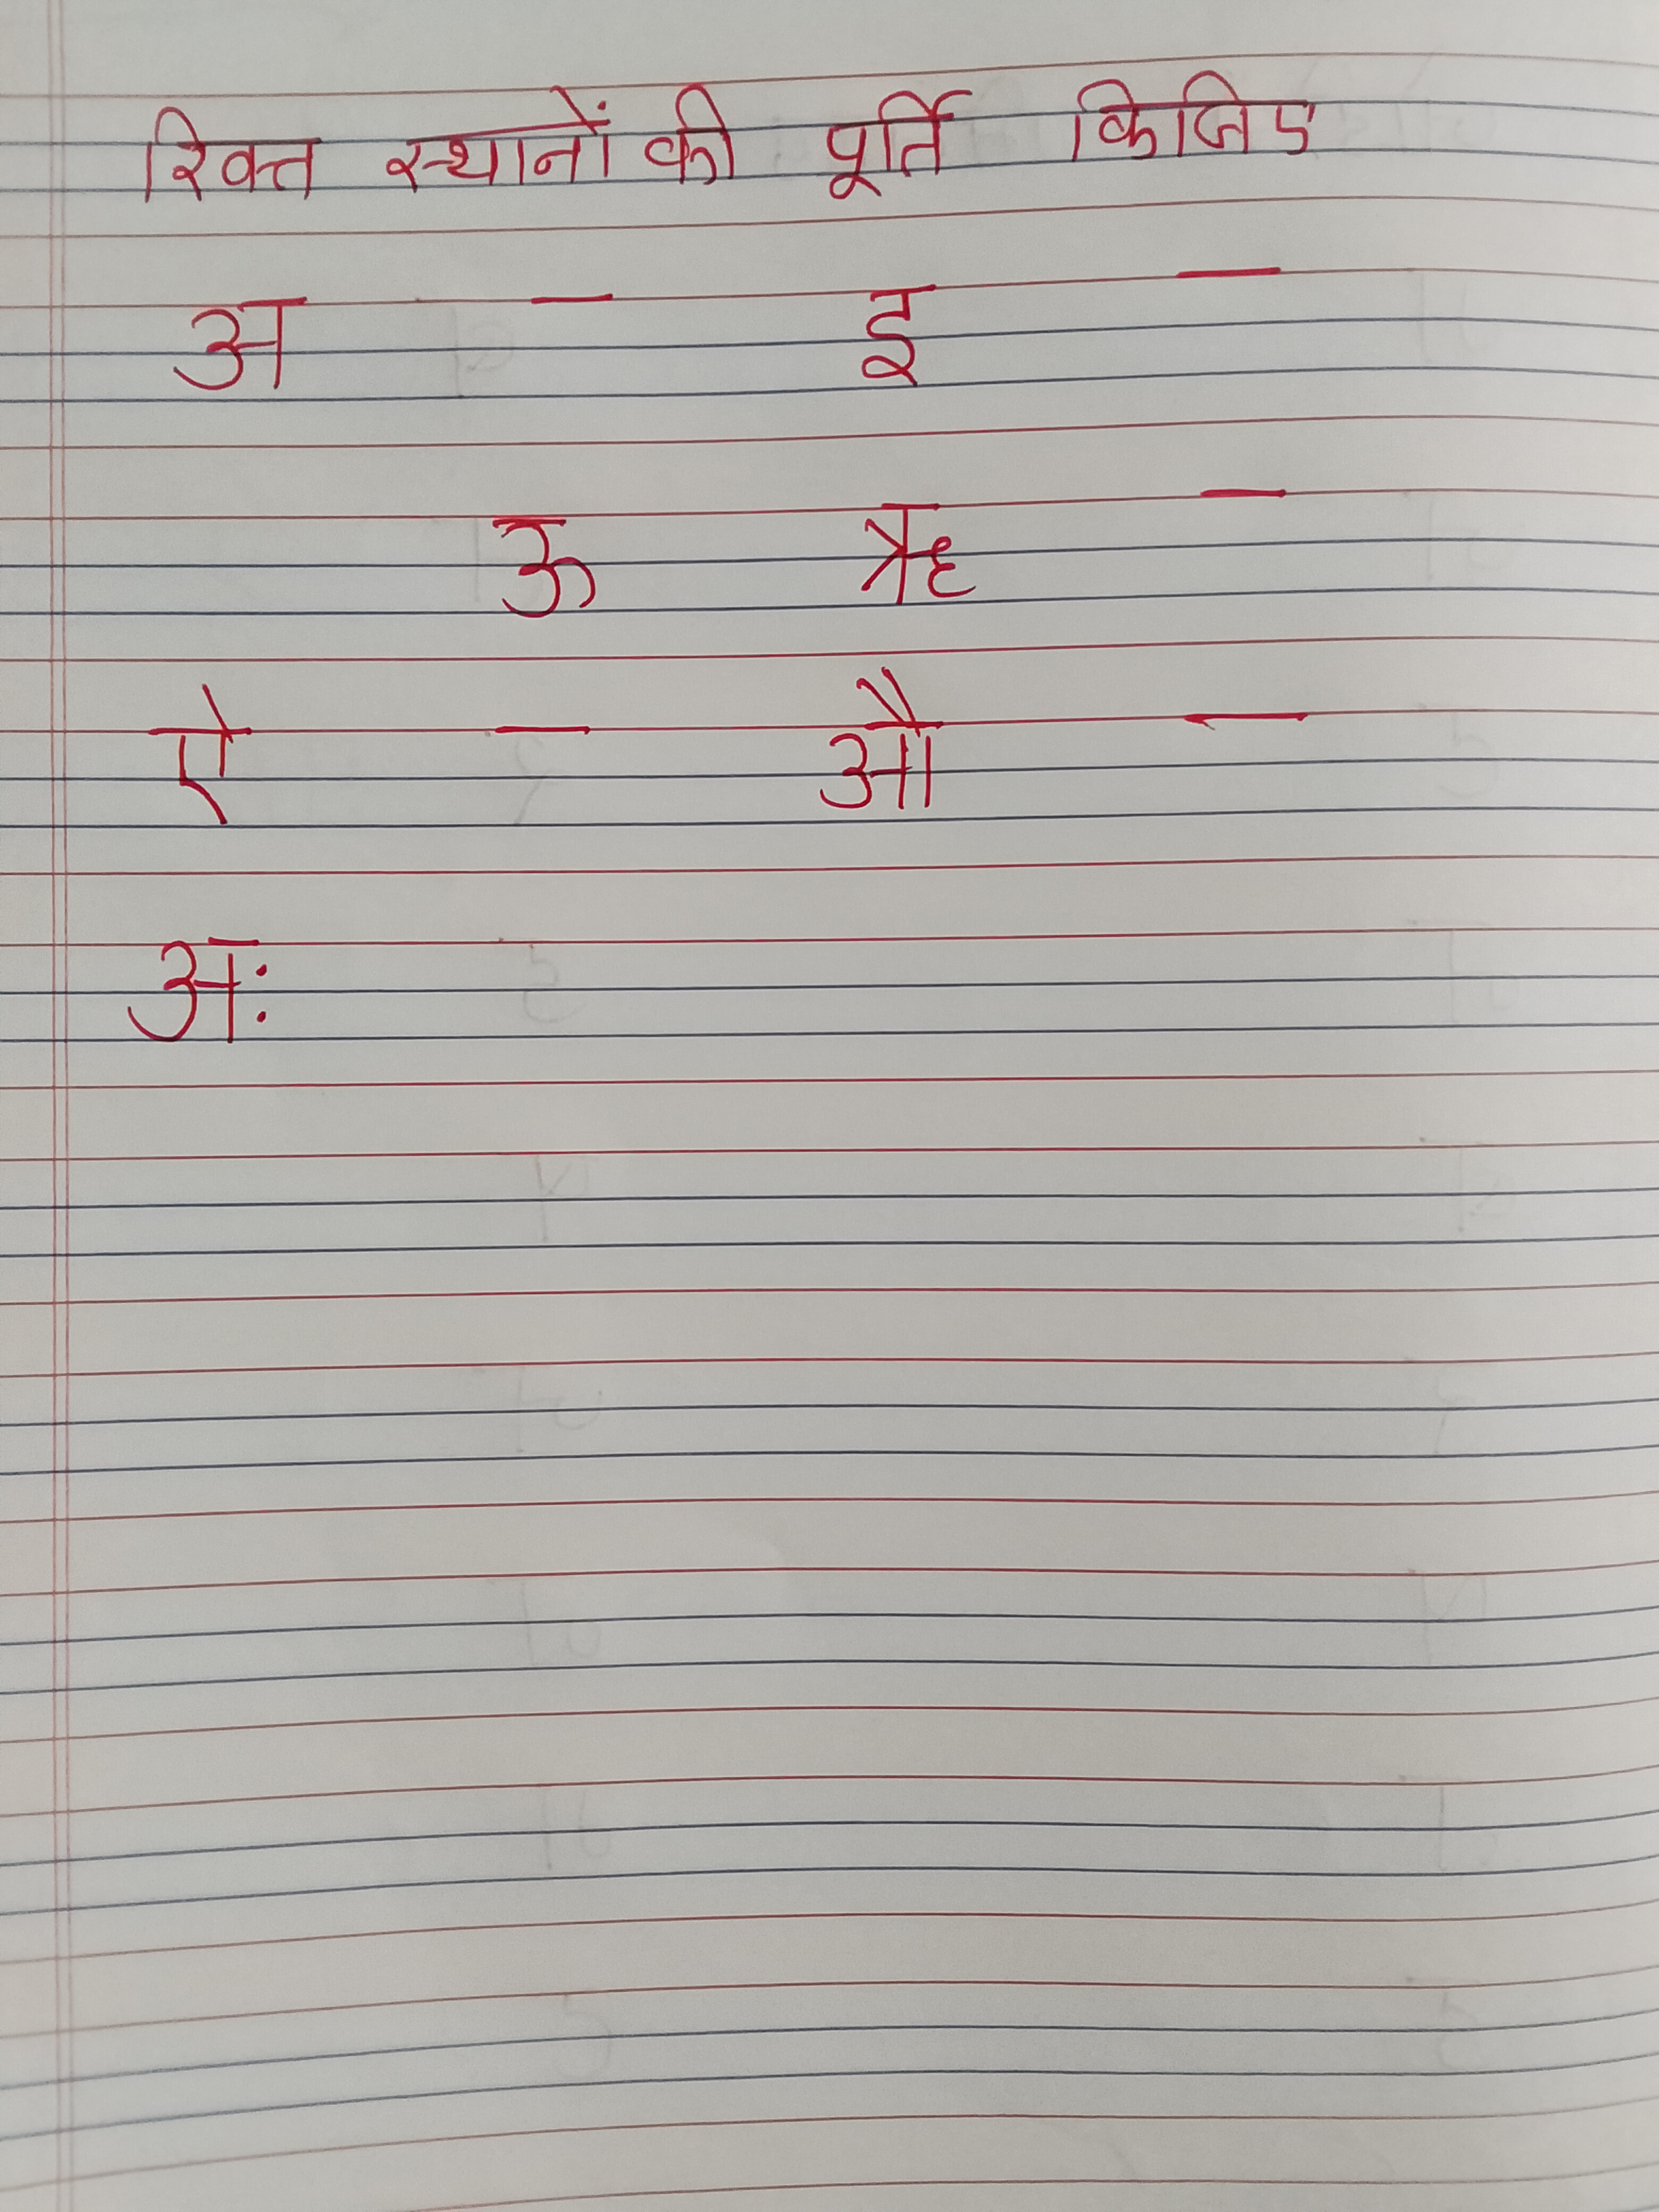 रिक्त स्थानों की पूर्ति किजिए
अ — इ —
ऊ ऋ —
ऐ — औ —
अः